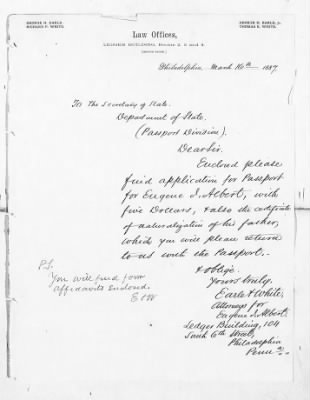 GEORGE H. EARLE,
RICHARD P. WHITE.
GEORGE H. EARLE, Jr.
THOMAS R. WHITE.
Law Offices,
LEDGER BUILDING, Rooms 2, 3 and 4.
Philadelphia, March 16th 1887.
To The Secretary of State.
Department of State.
(Passport Division).
Dear Sir.
Enclosed please
find application for Passport
for Eugene I. Albert, with
five Dollars, & also the certificate
of naturalization of his father,
which you will please return
to us with the Passport.
& oblige.
Yours truly,
Earle & White,
Attorneys for
Eugene I. Albert.
Ledger Building, 104
South 6th Street,
Philadelphia
Penna.
P.S.
You will find form
affidavits enclosed.
E & W